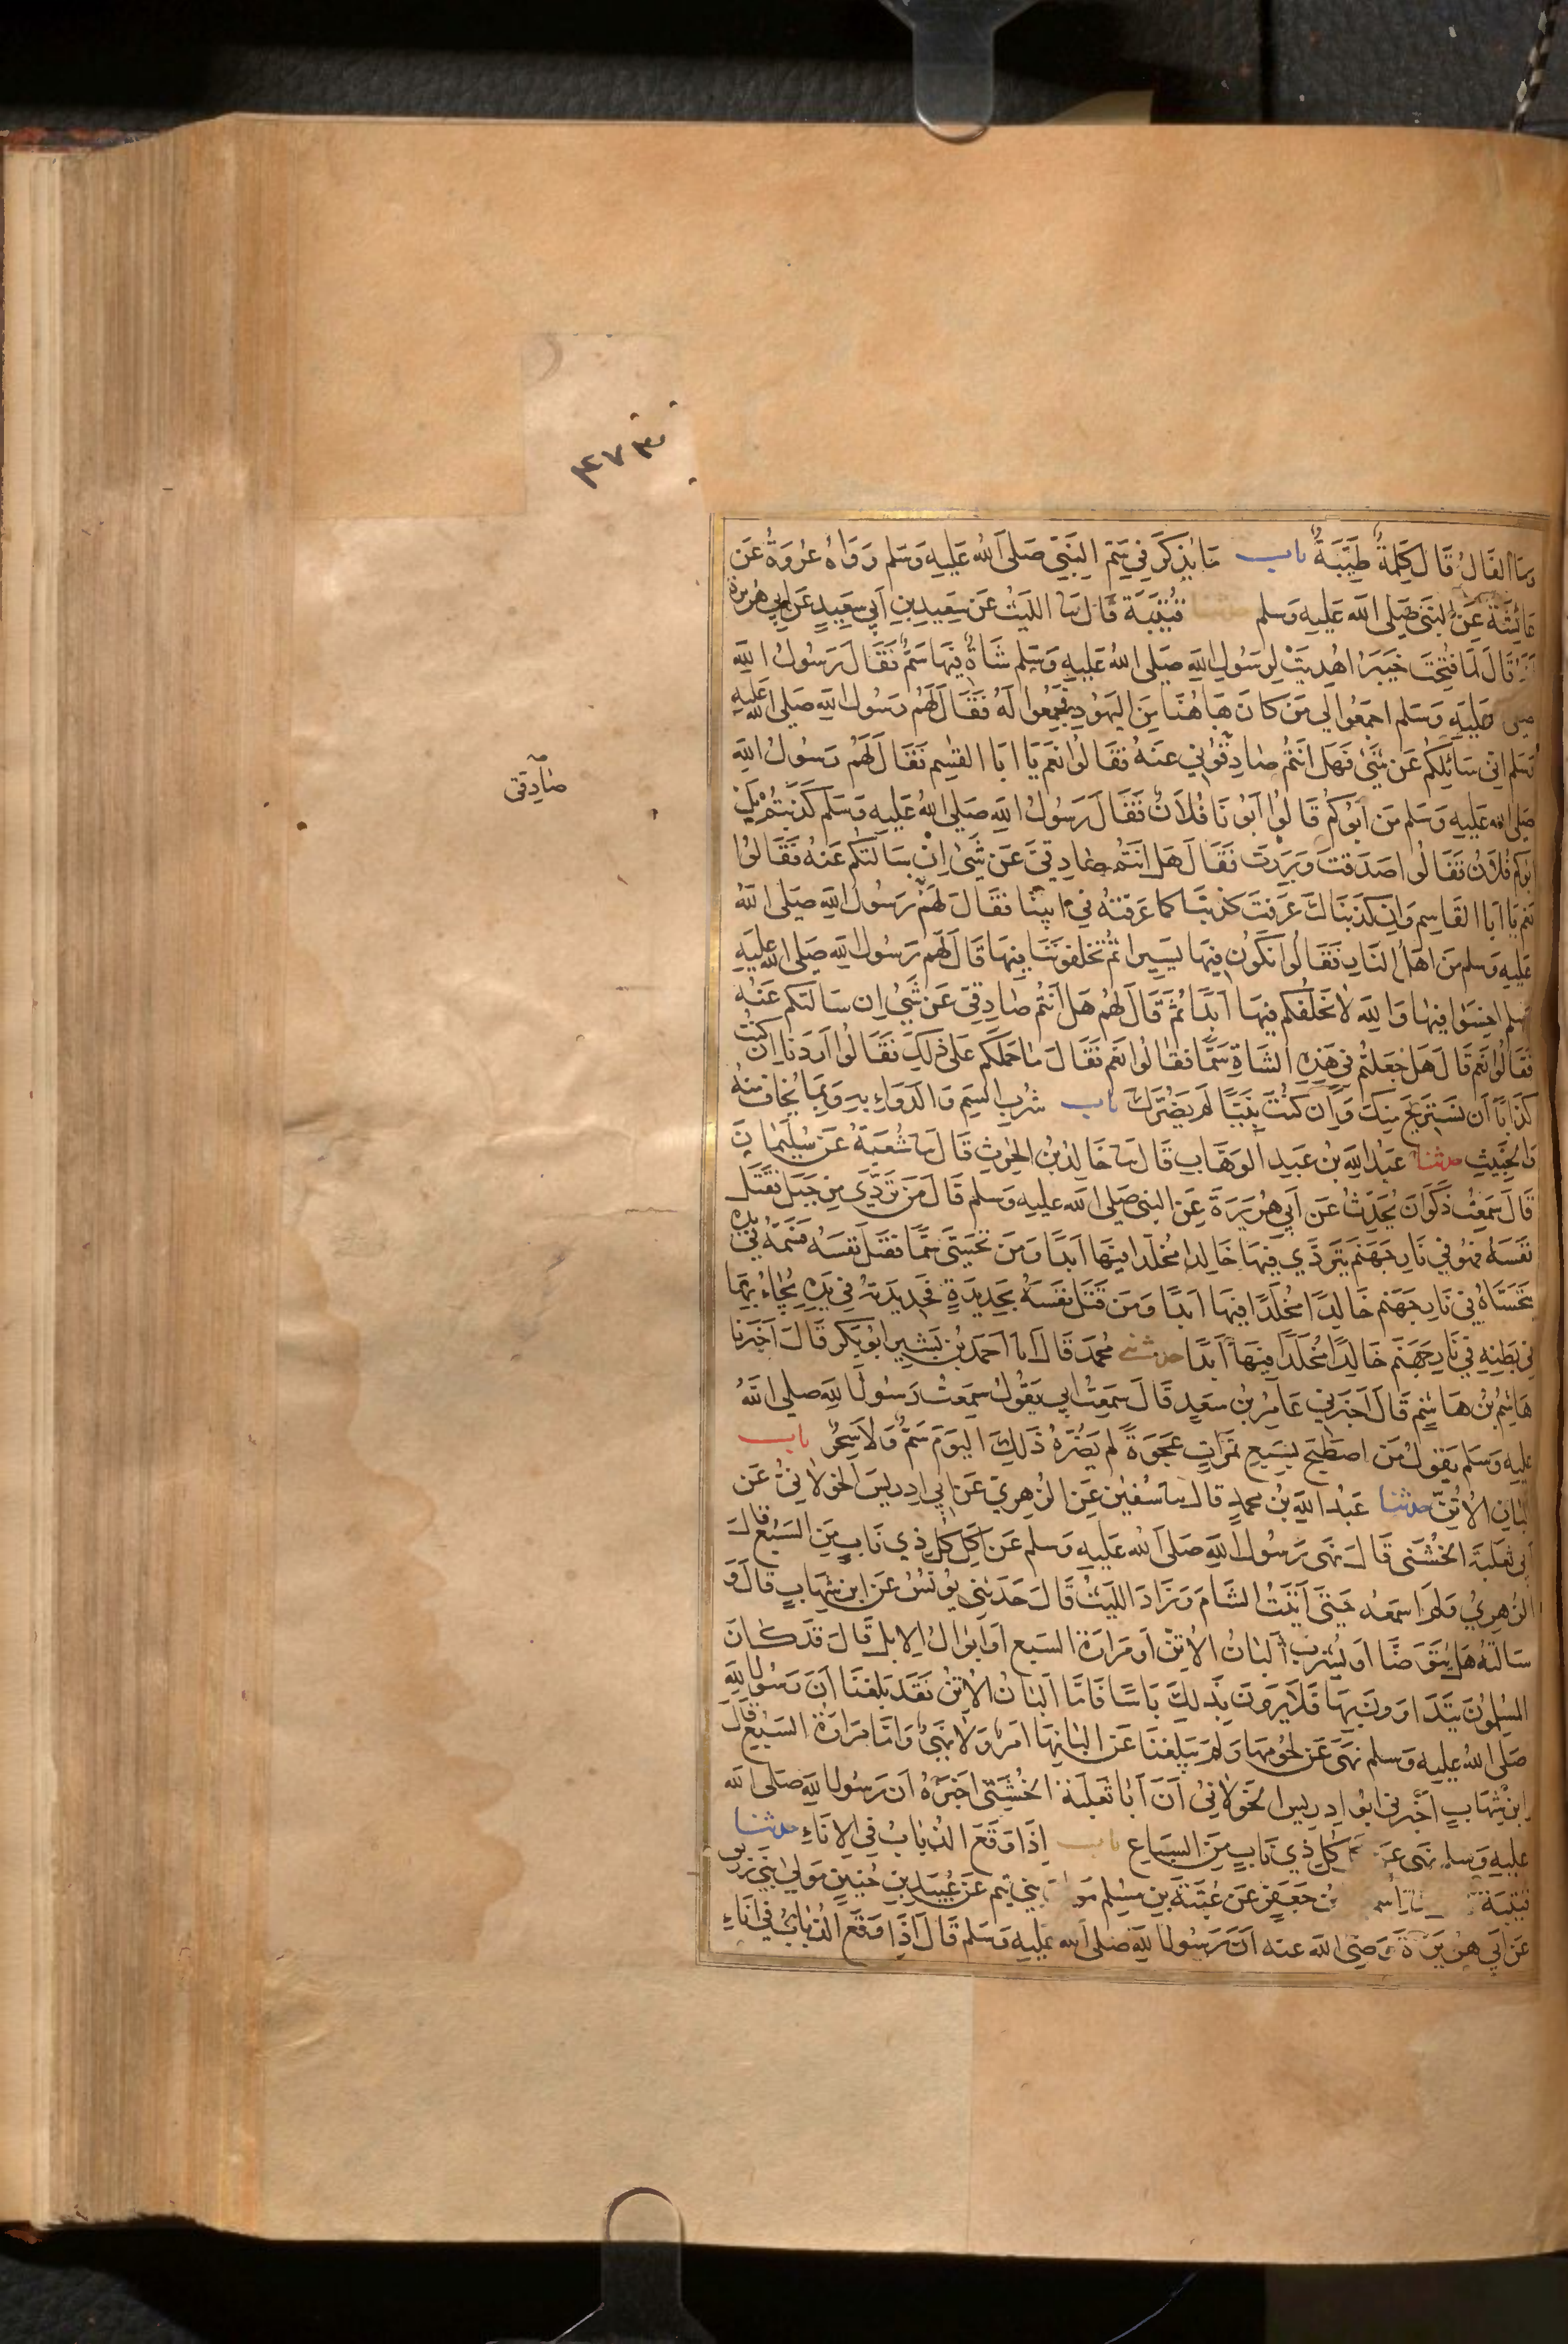 ٤٧٣
وما الفال قال كلمة طيبة باب ما يذكر في سم النبي صلى الله عليه وسلم رواه عروة عن
عائشة عن النبي صلى الله عليه وسلم حدثنا قتيبة قال سا الليث عن سعيد بن أبي سعيد عن ابي هريرة
قال لما فتحت خيبر اهديت لرسول الله صلى الله عليه وسلم شاة فيها سم فقال رسول الله
صلى عليه وسلم اجمعوا لي من كان هاهنا من اليهود فجمعوا له فقال لهم رسول الله صلى الله عليه
وسلم اني سائلكم عن شئ فهل انتم صادقوني عنه فقالوا نعم يا ابا القسم فقال لهم رسول الله
صلى الله عليه وسلم من ابوكم قالوا ابونا فلان فقال رسول الله صلى الله عليه وسلم كذبتم بل
ابوكم فلان فقالوا صدقت وبررت فقال هل انتم صادقي عن شئ ان سالتكم عنه فقالوا
نعم يا ابا القاسم وان كذبناك عرفت كذبنا كما عرفته في ابينا فقال لهم رسول الله صلى الله
عليه وسلم من اهل النار فقالوا نكون فيها يسيرا ثم تخلفوننا فيها قال لهم رسول الله صلى الله عليه
وسلم اخسوا فيها والله لا نخلفكم فيها ابدا ثم قال لهم هل انتم صادقي عن شئ ان سالتكم عنه
فقالوا نعم قال هل جعلتم في هذه الشاة سما فقالوا نعم فقال ما حملكم على ذلك فقالوا اردنا ان كنت
كذابا ان نستريح منك وان كنت نبيا لم يضرك باب شرب السم والدواء به وبما يخاف منه
والخبيث حدثنا عبد الله بن عبد الوهاب قال سا خالد بن الحرث قال سا شعبة عن سليمان
قال سمعت ذكوان يحدث عن ابي هريرة عن النبي صلى الله عليه وسلم قال من تردي من جبل فقتل
نفسه فهو في نار جهنم يتردي فيها خالدا مخلدا فيها ابدا ومن تحسى سما فقتل نفسه فسمه في يده
يتحساه في نار جهنم خالدا مخلدا فيها ابدا ومن قتل نفسه بحديدة فحديدته في يده يجاء بها
في بطنه في نار جهنم خالدا مخلدا فيها ابدا حدثني محمد قال انا احمد بن بشير ابو بكر قال اخبرنا
هاشم بن هاشم قال اخبرني عامر بن سعد قال سمعت ابي يقول سمعت رسول الله صلى الله
عليه وسلم يقول من اصطبح بسبع تمرات عجوة لم يضره ذلك اليوم سم ولا سحر باب
البان الاتن حدثنا عبد الله بن محمد قال سا سفين عن الزهري عن ابي ادريس الخولاني عن
ابي ثعلبة الخشني قال نهى رسول الله صلى الله عليه وسلم عن اكل كل ذي ناب من السبع قال
الزهري ولم اسمعه حتى اتيت الشام وزاد الليث قال حدثني يونس عن ابن شهاب قال و
سالته هل يتوضا او يشرب البان الاتن او مرارة السبع او ابوال الابل قال قد كان
المسلمون يتداوون بها فلا يرون بذلك باسا فاما البان الاتن فقد بلغنا ان رسول الله
صلى الله عليه وسلم نهى عن لحومها ولم يبلغنا عن البانها امر ولا نهي واما مرارة السبع قال
ابن شهاب اخبرني ابو ادريس الخولاني ان ابا ثعلبة الخشني اخبره ان رسول الله صلى الله
عليه وسلم نهى عن كل ذي ناب من السباع باب اذا وقع الذباب في الاناء حدثنا
قتيبة بن جعفر عن عتبة بن مسلم مولى بني تيم عن عبيد بن حنين مولى بني زريق
عن ابي هريرة رضي الله عنه ان رسول الله صلى الله عليه وسلم قال اذا وقع الذباب في اناء
صادقي